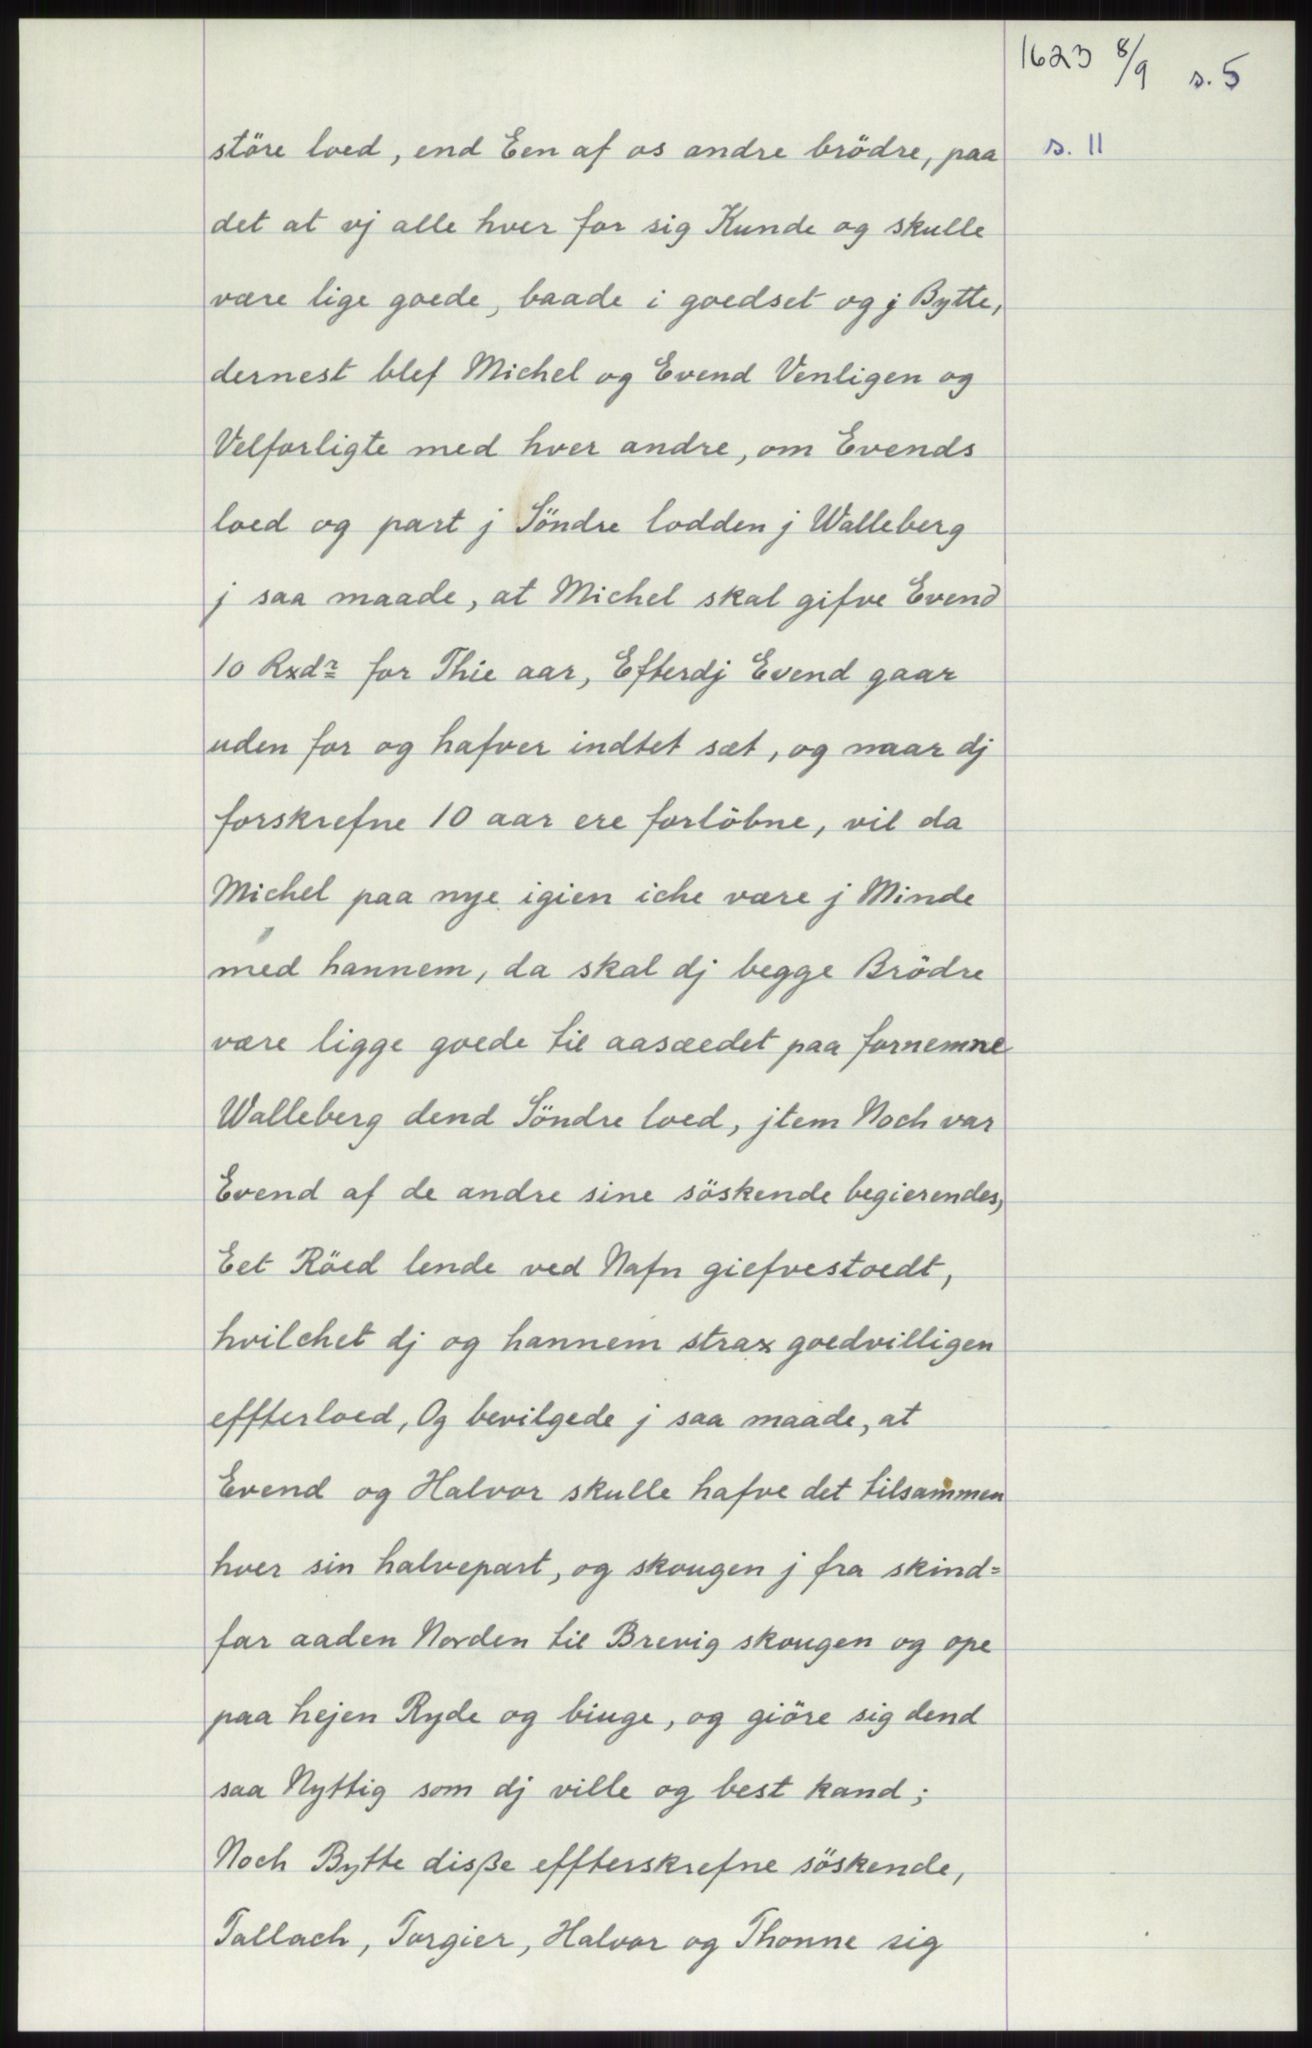 1623 8/9 s. 5
s. 11
störe loed, end Een af os andre brödre, paa
det at vj alle hver for sig Kunde og skulle
være lige goede, baade i goedset og j Bytte,
dernest blef Michel og Evend Venligen og
Velforligte med hver andre, om Evends
loed og part j Söndre lodden j Walleberg
j saa maade, at Michel skal gifve Evend
10 Rxdr for Thie aar, Efterdj Evend gaar
uden for og hafver indtet sæt, og naar dj
forskrefne 10 aar ere forlöbne, vil da
Michel paa nye igien iche være j Minde
med hannem, da skal dj begge Brödre
være ligge goede til aasæedet paa fornemne
Walleberg dend Söndre loed, jtem Noch var
Evend af de andre sine söskende begierendes,
Eet Röed lende ved Nafn giefvestoedt,
hvilchet dj og hannem strax goedvilligen
effterloed, Og bevilgede j saa maade, at
Evend og Halvor skulle hafve det tilsammen
hver sin halvepart, og skougen j fra skind=
far aaden Norden til Brevig skougen og ope
paa hejen Ryde og biuge, og giöre sig dend
saa Nyttig som dj ville og best kand;
Noch Bytte disße effterskrefne söskende,
Tallach, Torgier, Halvor og Thonne sig